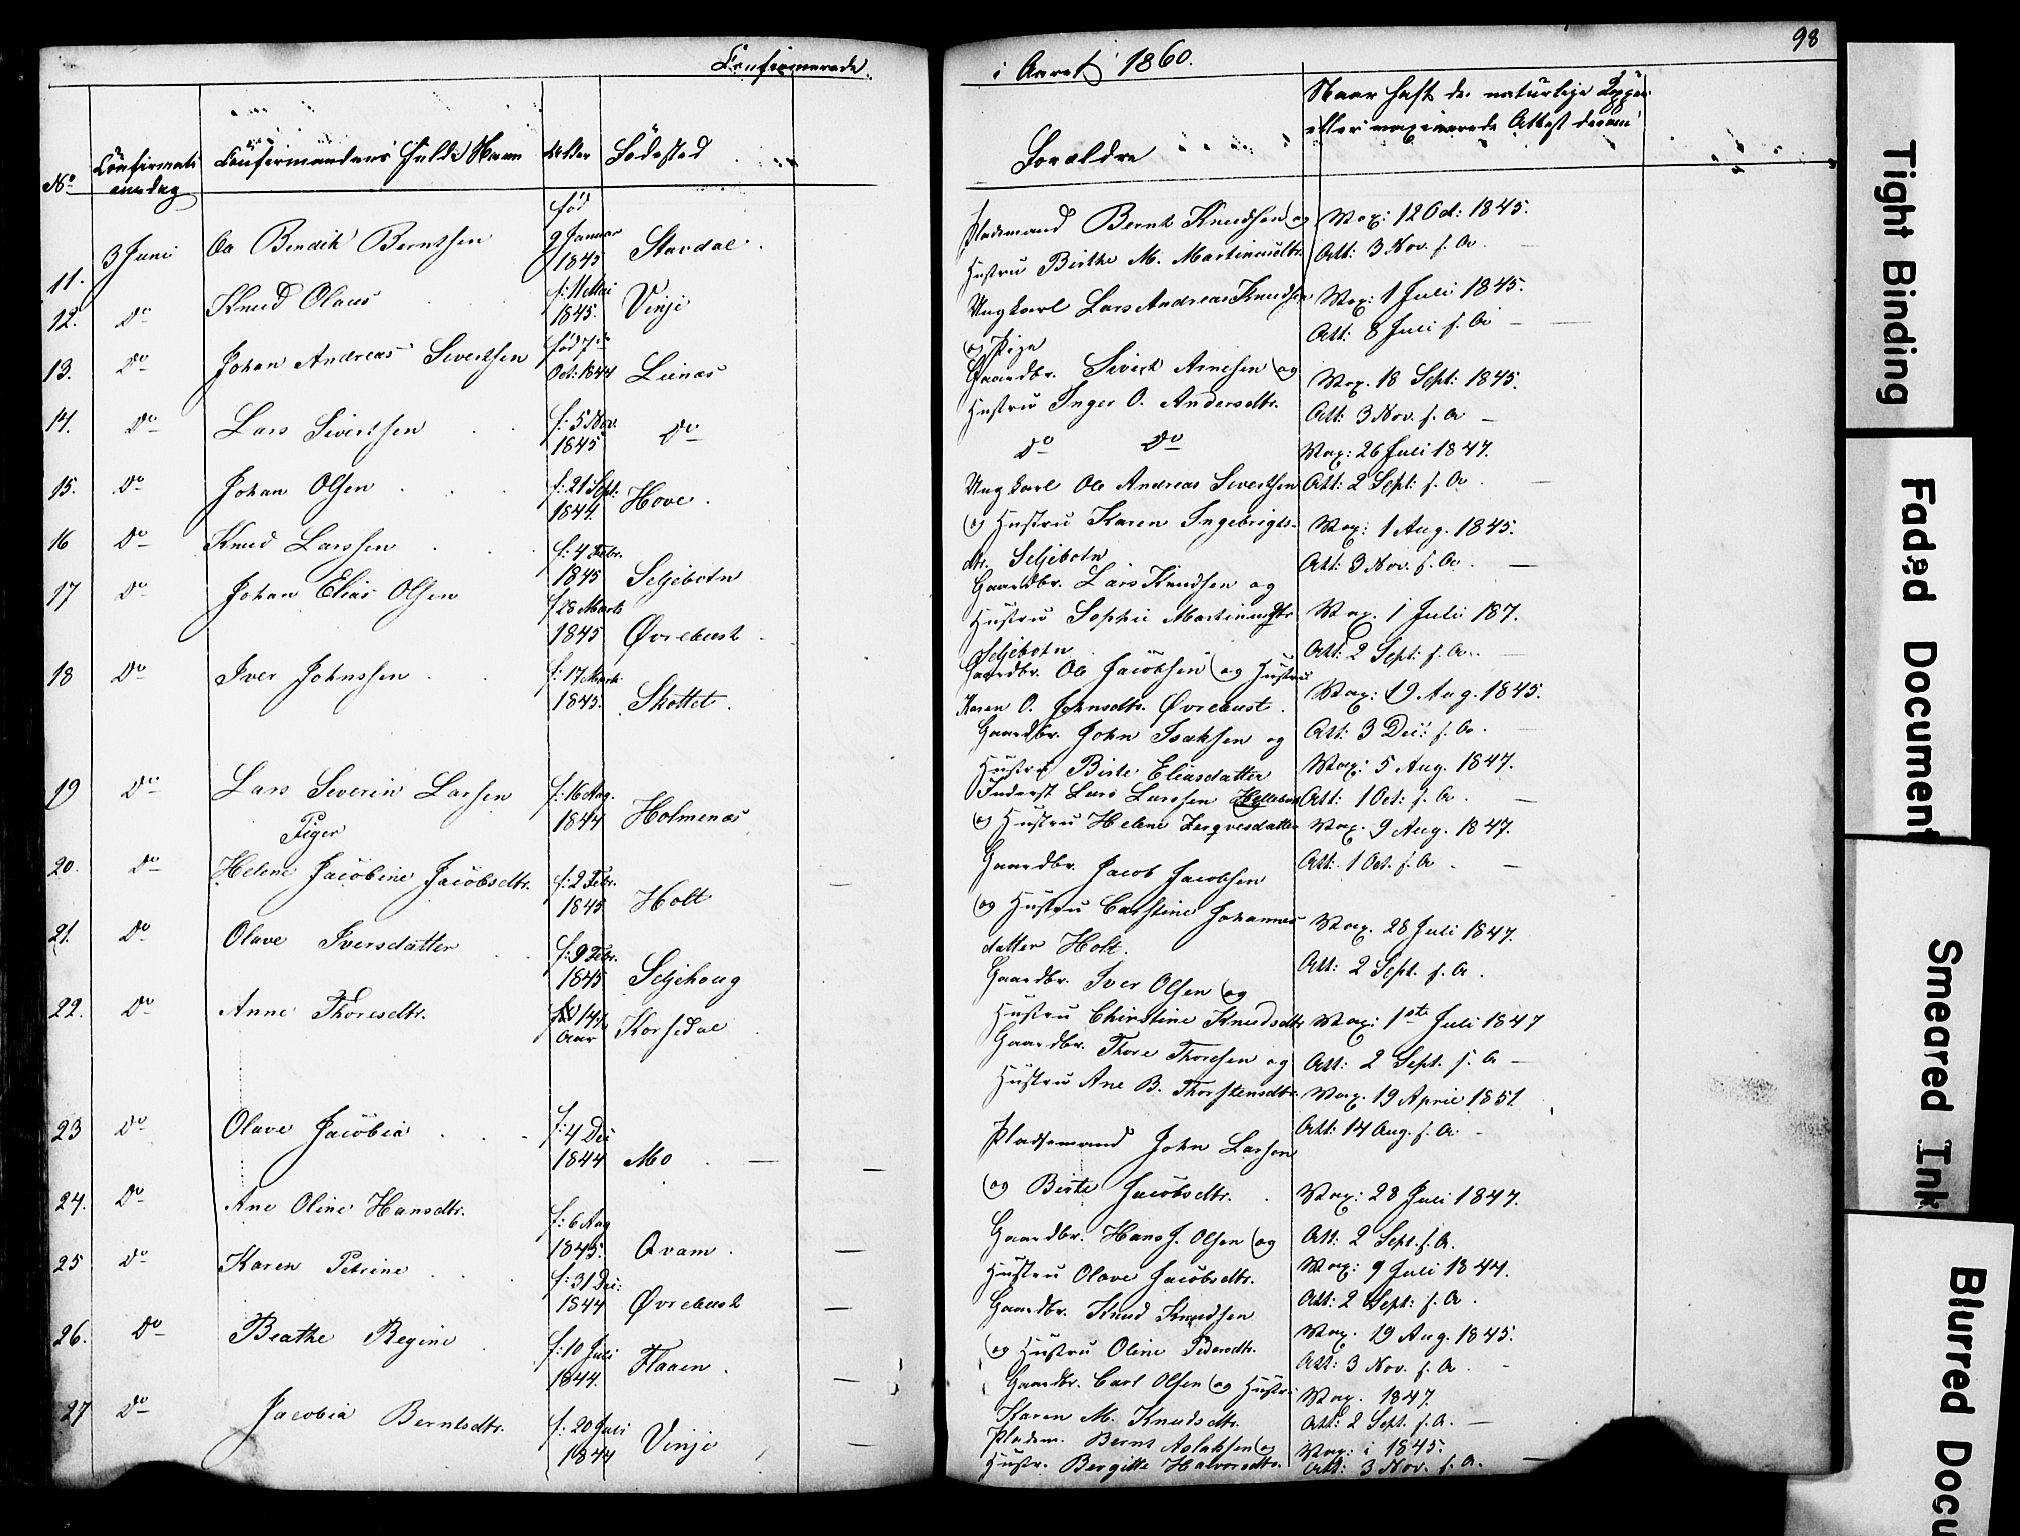 Confirmerede
No
Confirmati
onsdag
Confirmandens fulde Navn
Alder
Födested
11. 3 Juni Ole Bendik Berntsen
fød
9 Januar
1845
Stardal.
12. Do Knud Olaus
f: 11 Mai
1845.
Vinje
13. Do Johan Andreas Sivertsen
fød 7de
Oct: 1844
Leinæs
14. Do Lars Sivertsen
f: 5 Nov.
1845
Do
15. Do Johan Olsen
f: 21 Sept.
1844.
Hove.
16 Do Knud Larssen
f: 4 Febr.
1845
Seljebotn
17 Do Johan Elias Olsen
f 28 Marts
1845
Øvrebust
18 Do Iver Johnssen
f: 17 Marts
1845.
Skottet.
19 Do Lars Severin Larsen
f: 16 Aug.
1844
Holmenæs
Piger
20. Do Helene Jacobine Jacobsdtr.
f: 2 Febr.
1845
Holt
21. Do Olave Iversdatter
f: 9 Febr.
1845
Seljehoug
22. Do Anne Thoresdtr.
14½
Aar
Korsedal
23 Do Olave Jacobia
f: 4 Dec
1844
Mo
24. Do Ane Oline Hansdtr.
f: 6 Aug
1845.
Qvam.
25 Do Karen Petrine
f: 31 Dec:
1844
Øvrebust
26. Do Beathe Regine
f: 10 Juli
1844.
Flaaen.
27 Do Jacobia Berntsdtr.
f: 20 Juli
1844
Vinje
i Aaret 1860.
98
Forældre
Naar haft de naturlige Kopper
eller vaxinerede Attest derom
Pladsmand Bernt Knudsen og
Hustru Birthe M. Martinusdtr.
Ungkarl Lars Andreas Knudsen
og Pige
Gaardbr. Sivert Arnesen og
Hustru Inger O. Andersdtr.
Do Do
Ungkarl Ole Andreas Sivertsen
og Hustru Karen Ingebrigts-
dtr. Seljebotn
Gaardbr. Lars Knudsen og
Hustru Sophie Martinusdtr
Seljebotn
Gaardbr. Ole Jacobsen og Hustru
Karen O. Johnsdtr. Øvrebust.
Gaardbr. John Isaksen og
Hustru Birte Eliasdatter
Inderst Lars Larssen
og Hustru Helene
Gaardbr. Jacob Jacobsen
og Hustru Carstine Johannes
datter Holt.
Gaardbr. Iver Olsen og
Hustru Christine Knudsdtr
Gaardbr. Thore Thoresen og
Hustru Ane B. Thorstensdtr.
Pladsemand John Larsen
og Birte Jacobsdtr.
Gaardbr. Hans J. Olsen og
Hustru Olave Jacobsdtr.
Gaardbr. Knud Knudsen
og Hustru Oline Pedersdtr.
Gaardbr. Carl Olsen og Hustru
Karen M. Knudsdtr.
Pladsm. Bernt Aslaksen og
Hustr. Bergitte Halvorsdtr.
Vax: 12 Oct: 1845.
Att: 3 Nov. s. A.
Vax: 1 Juli 1845.
Att: 8 Juli s. A
Vax. 18 Sept: 1845.
Att: 3 Nov. s. A
Vax: 26 Juli 1847.
Att: 2 Sept: s. A.
Vax: 1 Aug. 1845.
Att: 3 Nov. s. A.
Vax. 1 Juli 187.
Att: 2 Sept: s. A.
Vax: 19 Aug. 1845.
Att: 3 Dec: s. A.
Vax: 5 Aug. 1847.
Att: 1 Oct: s. A.
Vax. 9 Aug. 1847.
Att: 1 Oct. s. A.
Vax. 28 Juli 1847.
Att: 2 Sept. s. A.
Vax: 1ste Juli 1847
Att: 2 Sept. s. A
Vax. 19 April 1851.
Att: 14 Aug. s. A.
Vax: 28 Juli 1847.
Att: 2 Sept. s. A.
Vax: 9 Juli 1844.
Att: 2 Sept: s. A.
Vax. 19 Aug. 1845.
Att: 3 Nov. s. A.
Vax. 1847.
Att: 2 Sept. s. A.
Vax: i 1845.
Att: 3 Nov. s. A.
Tight Binding
Faded Document
Smeared Ink
Blurred Docu